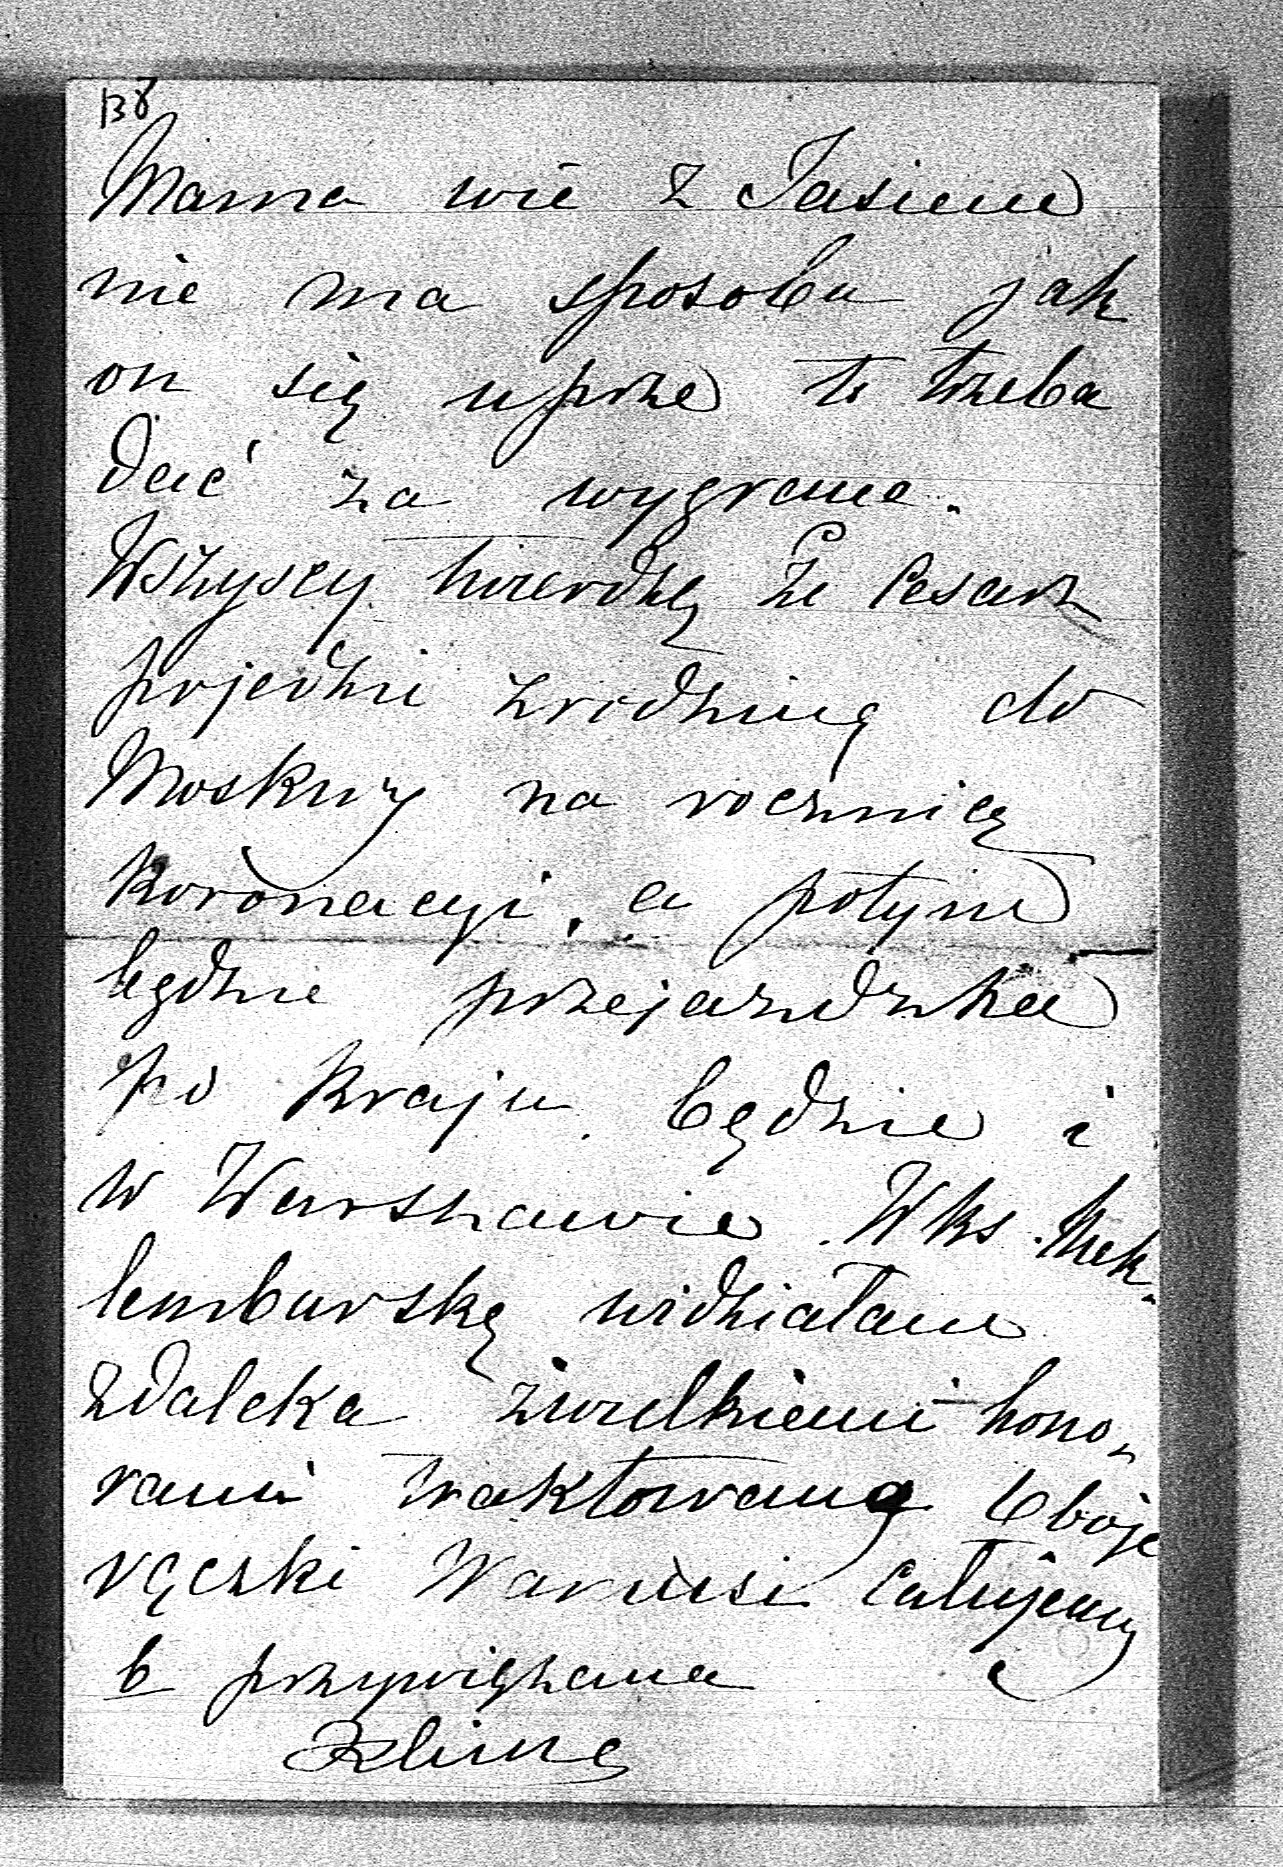 138
Mama wie z Jasiem
nie ma sposobu jak
on się uprze to trzeba
dać za wygrane.
Wszyscy twierdzą że Cesarz
pojedzie z rodziną do
Moskwy na rocznicę
koronacyi, a potym
będzie przejazdzka
po kraju będzie i
w Warszawie. W ks. Mek-
lemburską widziałam
zdaleka z wielkiemi hono-
rami traktowaną Oboje
rączki Mamusi całujemy
b przywiązana